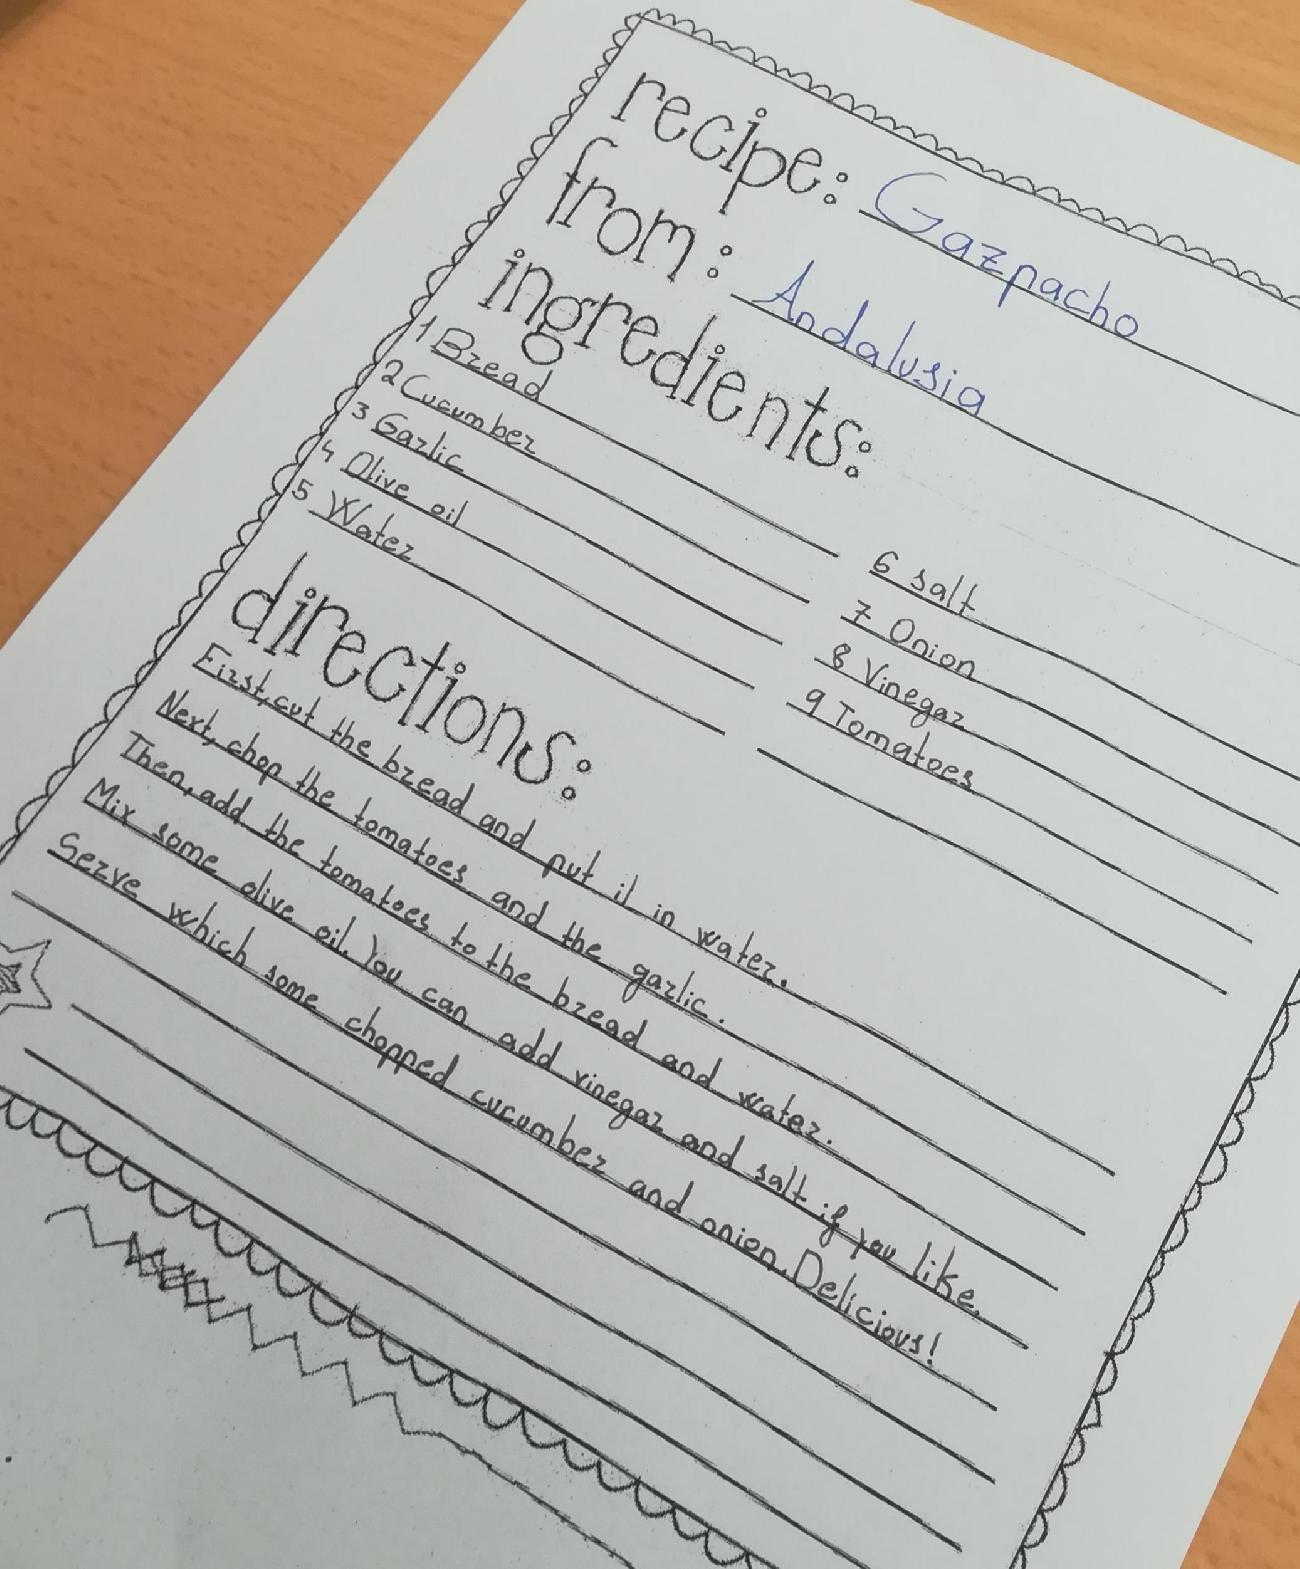 recipe: Gazpacho
from: Andalusia
ingredients:
1 Bread
2 Cucumber
3 Garlic
4 Olive oil
5 Water
6 salt
7 Onion
8 Vinegar
9 Tomatoes
directions:
First, cut the bread and put it in water.
Next, chop the tomatoes and the garlic.
Then, add the tomatoes to the bread and water.
Mix some olive oil. You can add vinegar and salt if you like.
Serve which some chopped cucumber and onion. Delicious!